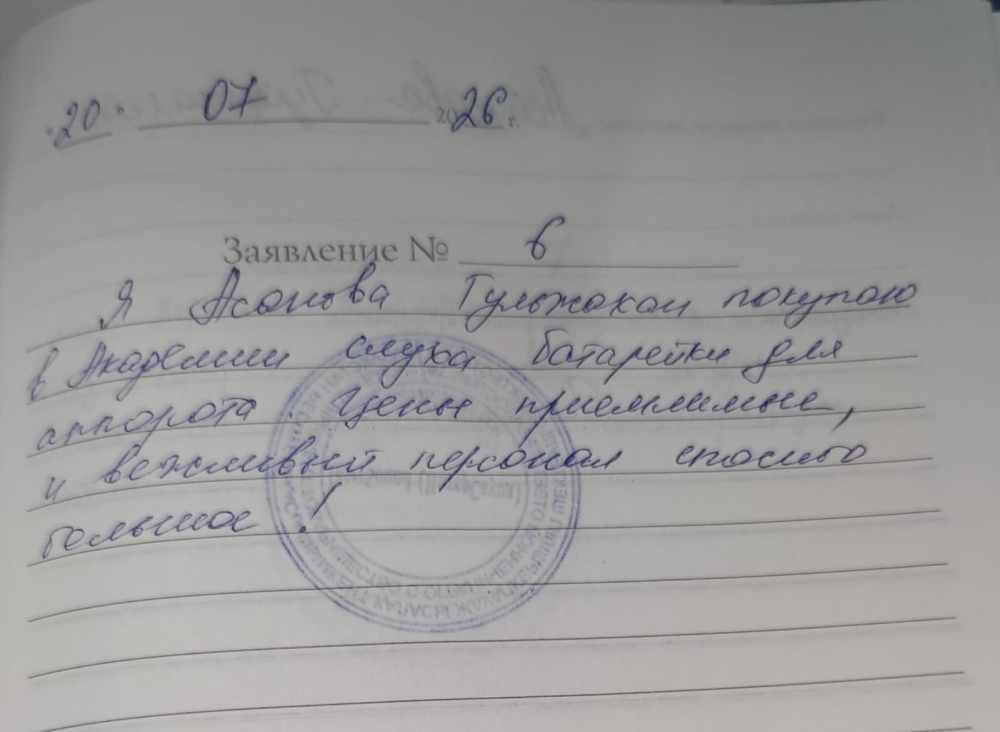 "20" 07 2026 г.
Заявление № 6
Я Асанова Гульжахан покупаю
в Академии слуха батарейки для
аппорота. Цены приемлимые,
и вежливый персонал спасибо
большое!